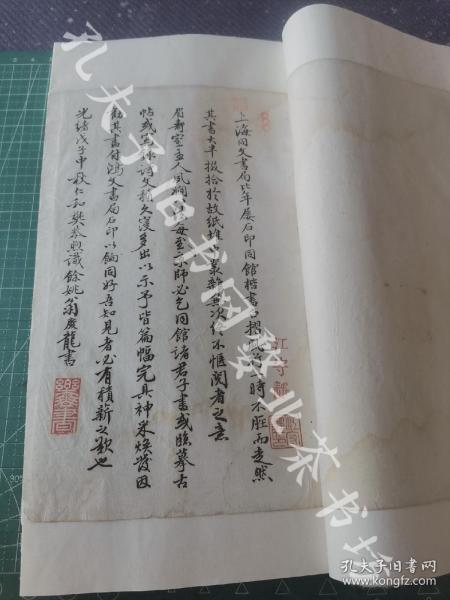 上海同文書局比年屢石印同館楷書
時不脛而走然
其書大半掇拾於故紙堆
叢雜無次
不愜閱者之意
眉
室主人
每至京師必乞同館諸君子書或臨摹古
帖或寫
詩文積久寖多出以示予皆篇幅完具神采煥發因
勸其書付鴻文書局石印以餉同好吾知見者必有積薪之歎也
光緒戊子申秋仁和樊恭煦識餘姚翁慶龍書
孔夫子旧书网
孔夫子旧书网
www.kongfz.com